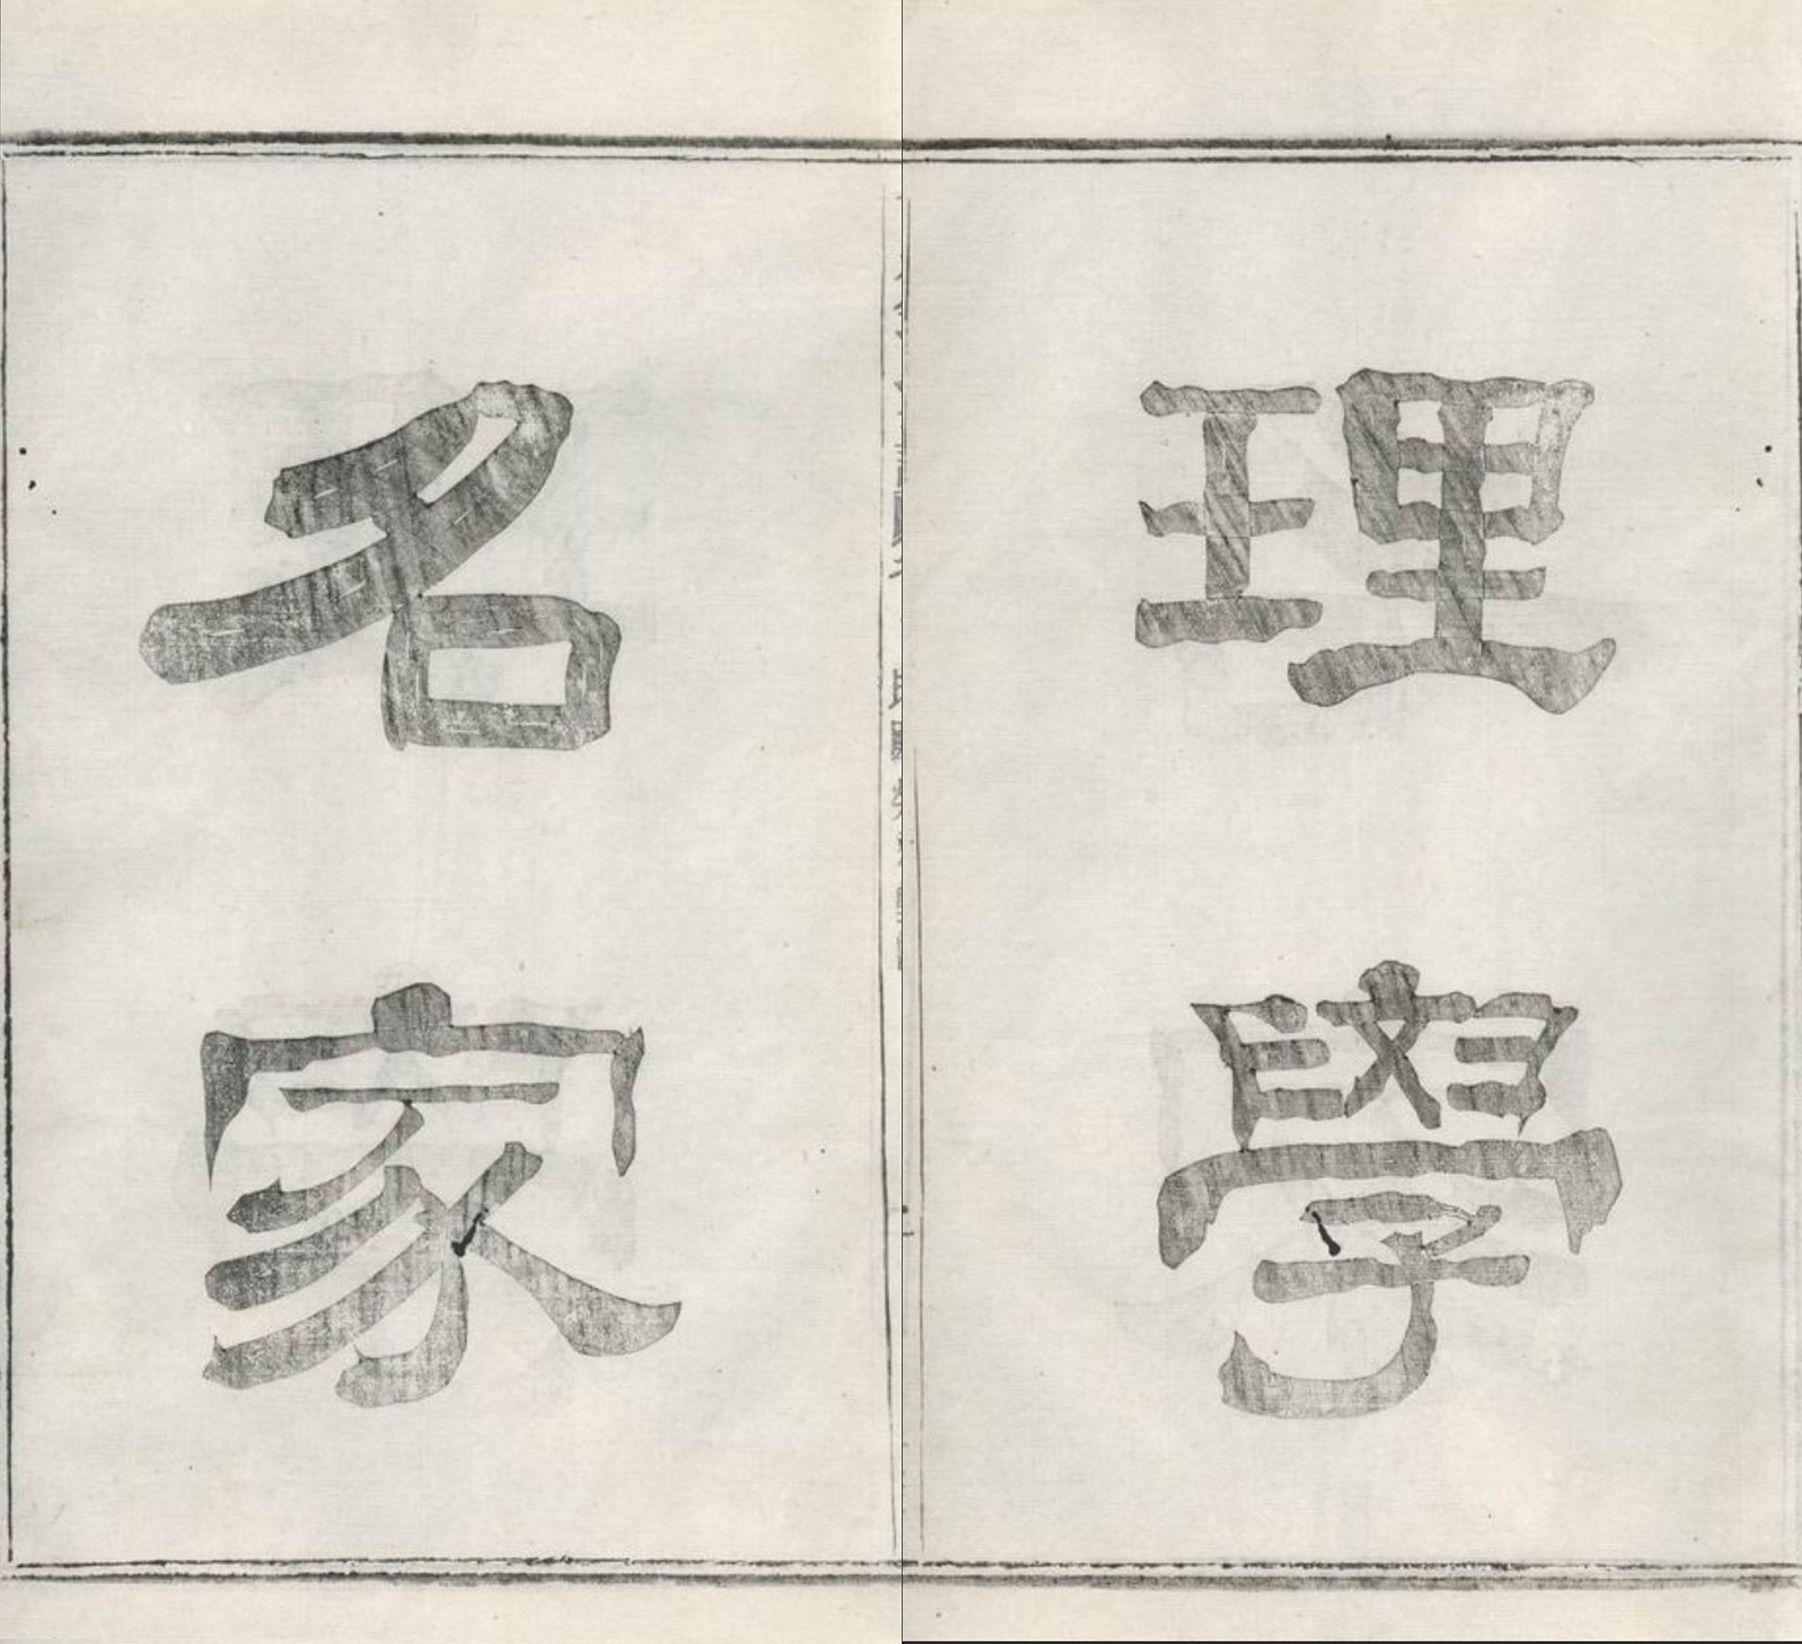 理學
名家